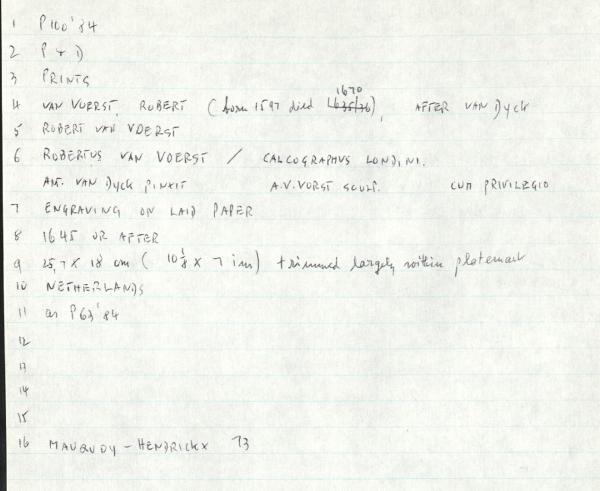 1 P100'84
2 P + D
3 PRINTS
1670
4 VAN VOERST, ROBERT (born 1597 died 1635/36), AFTER VAN DYCK
5 ROBERT VAN VOERST
6 ROBERTUS VAN VOERST / CALCOGRAPHUS LONDINI.
ANT. VAN DYCK PINXIT A.V.VORST SCULP. CUM PRIVILEGIO
7 ENGRAVING ON LAID PAPER
8 1645 OR AFTER
9 25,7 X 18 cm ( 10 1/8 X 7 im) trimmed largely within platemark
10 NETHERLANDS
11 as P63'84
12
13
14
15
16 MAUQUOY-HENDRICKX 73